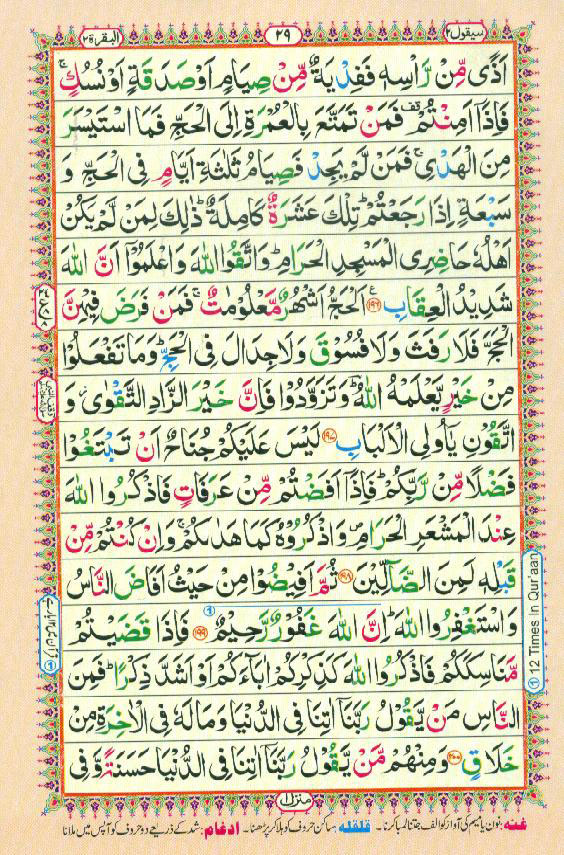 سيقول ٢ ٢٩ البقرة ٢
اَذًى مِّنْ رَّاْسِهٖ فَفِدْيَةٌ مِّنْ صِيَامٍ اَوْ صَدَقَةٍ اَوْ نُسُكٍ ۚ
فَاِذَاۤ اَمِنْتُمْ ۥ فَمَنْ تَمَتَّعَ بِالْعُمْرَةِ اِلَى الْحَجِّ فَمَا اسْتَيْسَرَ
مِنَ الْهَدْیِ ۚ فَمَنْ لَّمْ يَجِدْ فَصِيَامُ ثَلٰثَةِ اَيَّامٍ فِی الْحَجِّ وَ
سَبْعَةٍ اِذَا رَجَعْتُمْ ؕ تِلْكَ عَشَرَةٌ كَامِلَةٌ ؕ ذٰلِكَ لِمَنْ لَّمْ يَكُنْ
اَهْلُهٗ حَاضِرِی الْمَسْجِدِ الْحَرَامِ ؕ وَاتَّقُوا اللّٰهَ وَاعْلَمُوْۤا اَنَّ اللّٰهَ
شَدِيْدُ الْعِقَابِ ﴿۱۹۶﴾ اَلْحَجُّ اَشْهُرٌ مَّعْلُوْمٰتٌ ۚ فَمَنْ فَرَضَ فِيْهِنَّ
الْحَجَّ فَلَا رَفَثَ وَلَا فُسُوْقَ وَلَا جِدَالَ فِی الْحَجِّ ؕ وَمَا تَفْعَلُوْا
مِنْ خَيْرٍ يَّعْلَمْهُ اللّٰهُ ؔؕ وَتَزَوَّدُوْا فَاِنَّ خَيْرَ الزَّادِ التَّقْوٰی ؗ وَ
اتَّقُوْنِ يٰۤاُولِی الْاَلْبَابِ ﴿۱۹۷﴾ لَيْسَ عَلَيْكُمْ جُنَاحٌ اَنْ تَبْتَغُوْا
فَضْلًا مِّنْ رَّبِّكُمْ ؕ فَاِذَاۤ اَفَضْتُمْ مِّنْ عَرَفَاتٍ فَاذْكُرُوا اللّٰهَ
عِنْدَ الْمَشْعَرِ الْحَرَامِ ۪ وَاذْكُرُوْهُ كَمَا هَدٰىكُمْ ۚ وَاِنْ كُنْتُمْ مِّنْ
قَبْلِهٖ لَمِنَ الضَّآلِّيْنَ ﴿۱۹۸﴾ ثُمَّ اَفِيْضُوْا مِنْ حَيْثُ اَفَاضَ النَّاسُ
وَاسْتَغْفِرُوا اللّٰهَ ؕ اِنَّ اللّٰهَ غَفُوْرٌ رَّحِيْمٌ ﴿۱۹۹﴾ فَاِذَا قَضَيْتُمْ
مَّنَاسِكَكُمْ فَاذْكُرُوا اللّٰهَ كَذِكْرِكُمْ اٰبَآءَكُمْ اَوْ اَشَدَّ ذِكْرًا ؕ فَمِنَ
النَّاسِ مَنْ يَّقُوْلُ رَبَّنَاۤ اٰتِنَا فِی الدُّنْيَا وَمَا لَهٗ فِی الْاٰخِرَةِ مِنْ
خَلَاقٍ ﴿۲۰۰﴾ وَمِنْهُمْ مَّنْ يَّقُوْلُ رَبَّنَاۤ اٰتِنَا فِی الدُّنْيَا حَسَنَةً وَّ فِی
منزل ١
12 Times In Qur'aan
غنه: نون یا میم کی آواز کو الف جتنا لمبا کرنا۔ قلقله: ساکن حروف کو ہلا کر پڑھنا۔ ادغام: شد کے ذریعے دو حروف کو آپس میں ملانا